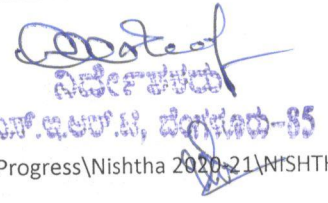 ನಿರ್ದೇಶಕರು
ಎಸ್.ಇ.ಆರ್.ಟಿ, ಬೆಂಗಳೂರು-85
Progress\Nishtha 2020-21\NISHTH